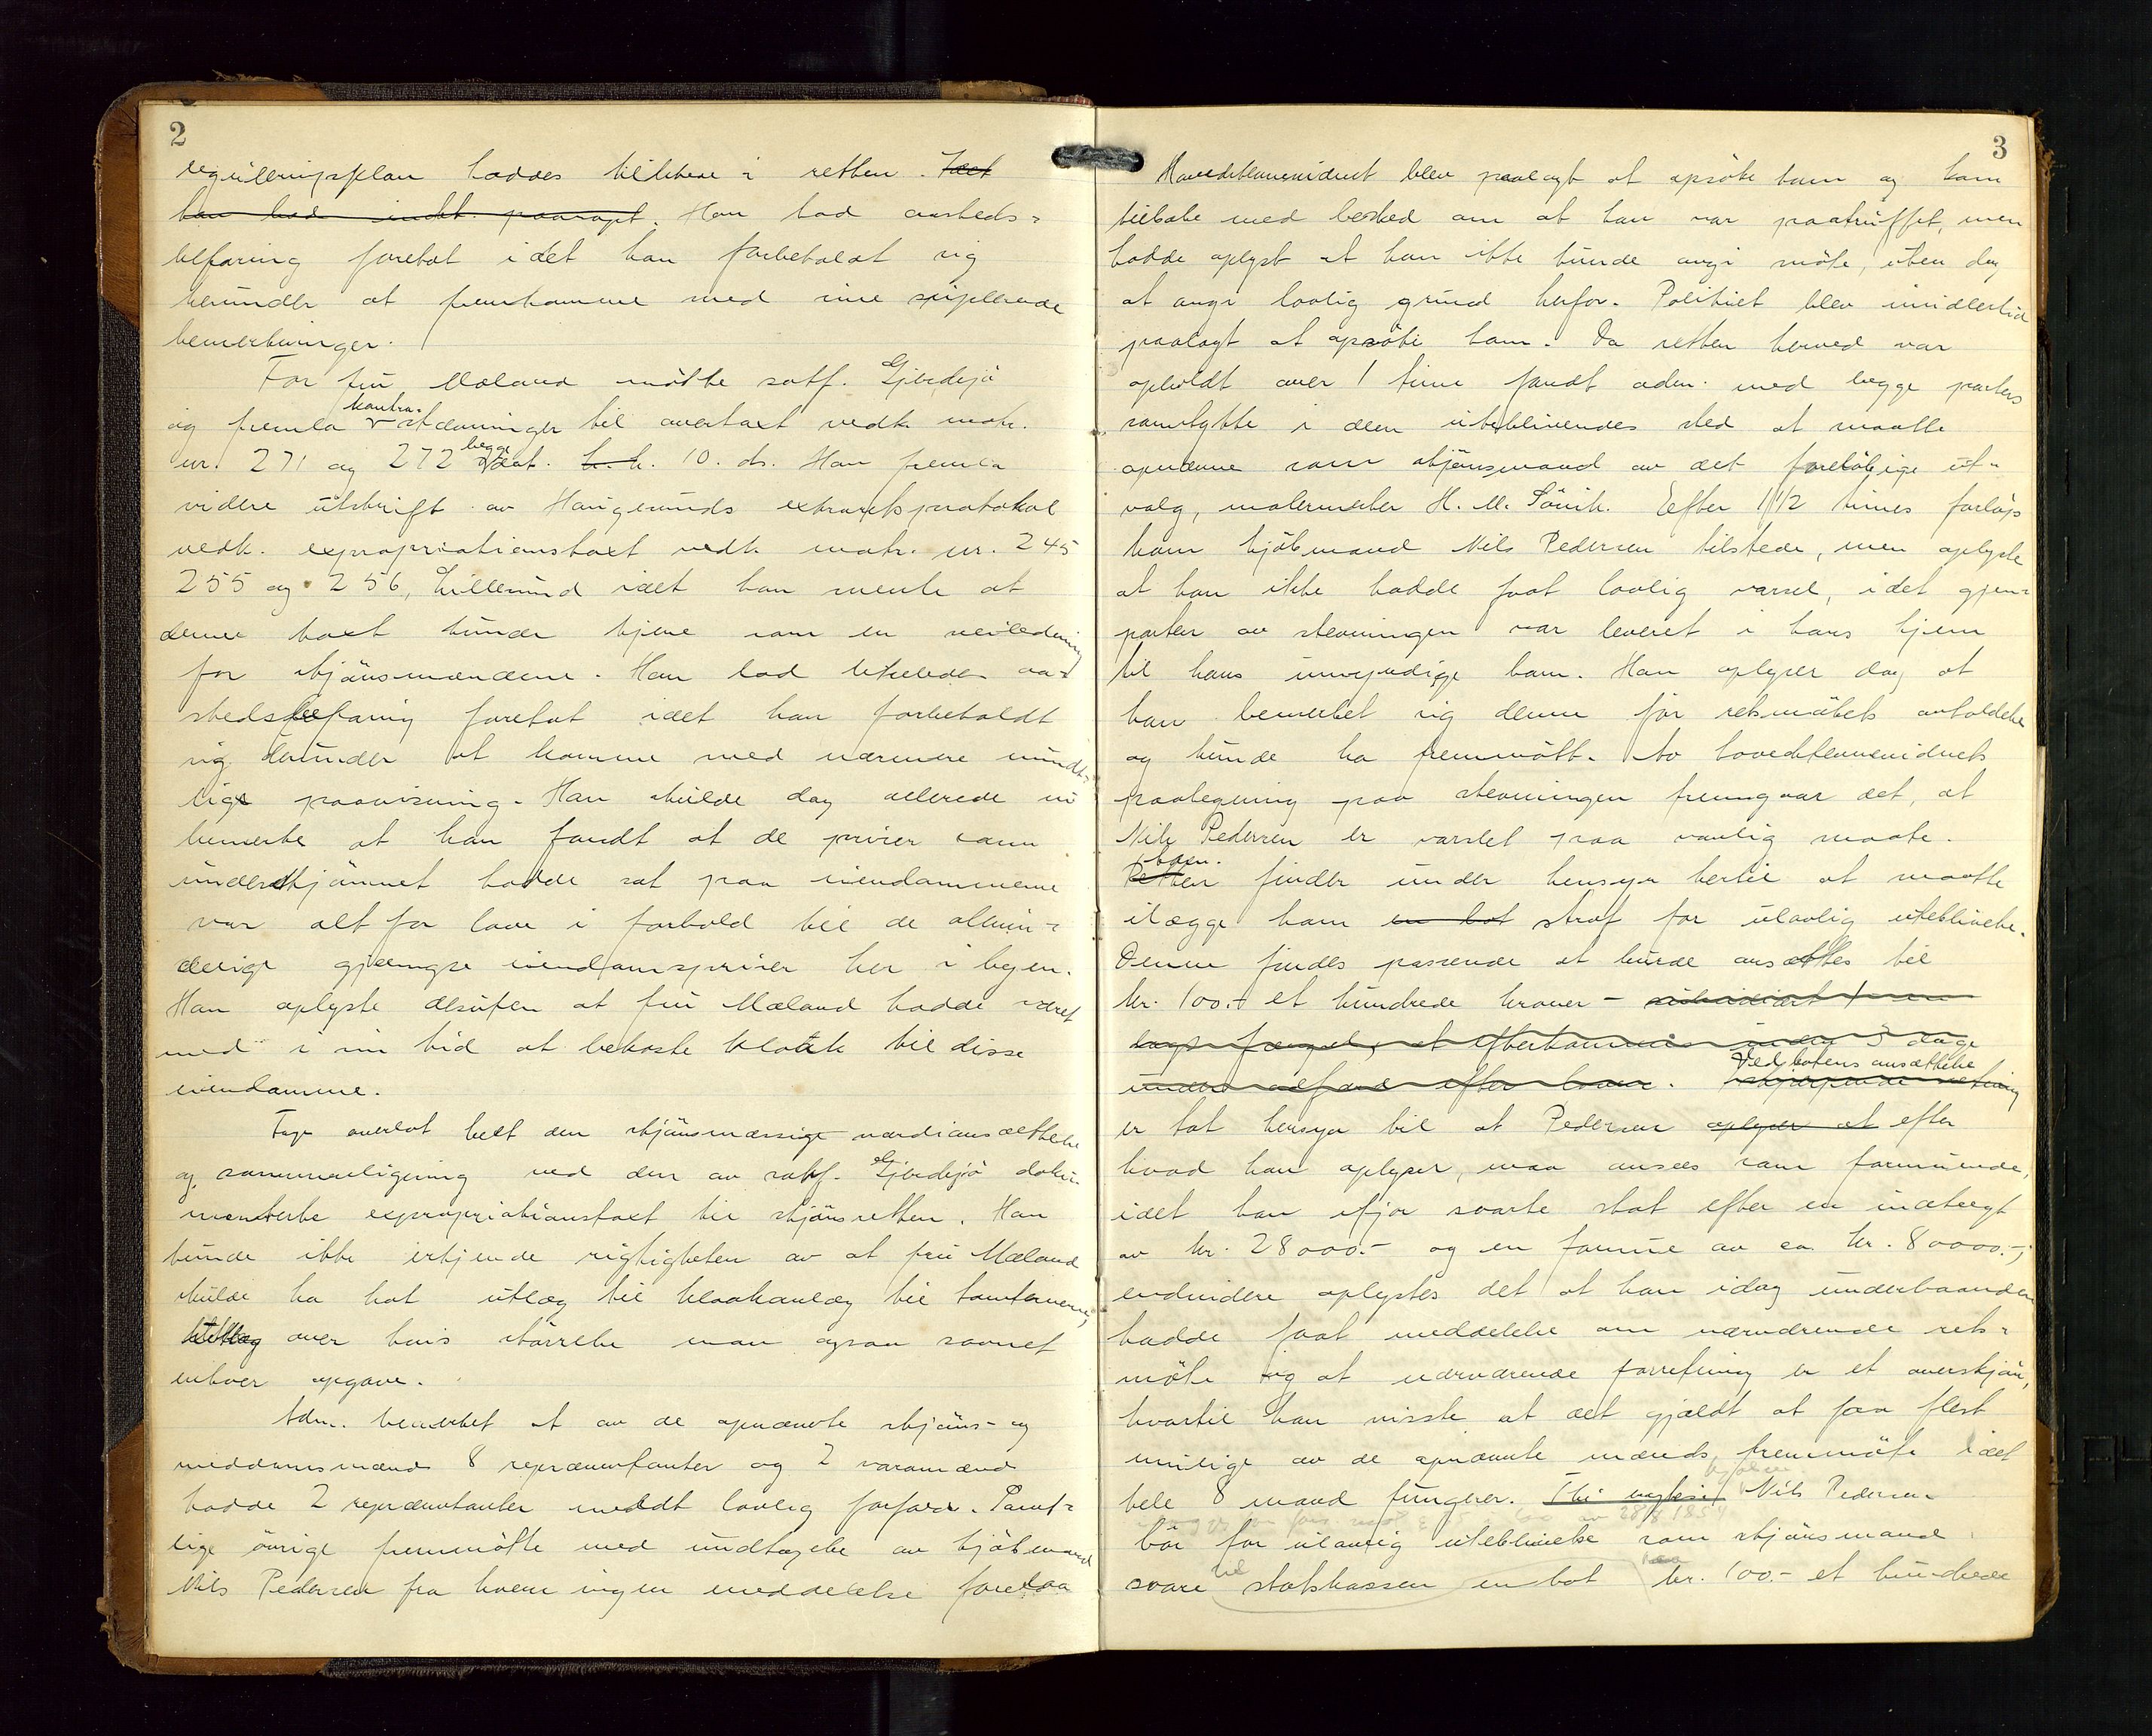 2
reguleringsplan haddes tilstede i retten. Idet
han had indet paaropt. Han bad aasteds-
befaring foretat idet han forbeholdt sig
herunder at fremkomme med sine supplerende
bemerkninger.
For fru Mæland møtte sakf. Gjerdesjø
og fremla kontra-stævninger til overtaxt vedk. matr.
nr. 271 og 272 begge dat. h. h. 10. ds. Han fremla
videre utskrift av Haugesunds extraretsprotokol
vedk. expropriationstaxt vedk matr. nr. 245
255 og 256, Lillesund idet han mente at
denne taxt kunde tjene som en veiledning
for skjønsmændene. Han bad likeledes aa-
stedsbefaring foretat idet han forbeholdt
sig derunder at komme med nærmere mundt-
lige paavisning. Han skulde dog allerede nu
bemerke at han fandt at de priser som
underskjønnet hadde sat paa eiendommene
var alt for lave i forhold til de almin-
delige gjængse eiendomspriser her i byen.
Han oplyste desuten at fru Mæland hadde været
med i sin tid at bekoste kloak til disse
eiendomme.
Fage overlot helt den skjønsmæssige værdiansættelse
og sammenligning ved den av sakf. Gjerdesjø doku-
menterte expropriationstaxt til skjønsretten. Han
kunde ikke erkjende rigtigheten av at fru Mæland
skulde ha hat utlæg til kloakanlæg til tomterne,
utlæg over hvis størrelse man ogsaa savnet
enhver opgave.
Adm. bemerket at av de opnævnte skjøns- og
meddomsmænd 8 repræsentanter og 2 varamænd
hadde 2 repræsentanter meldt lovlig forfald. Samt-
lige øvrige fremmøtte med undtagelse av kjøbmand
Nils Pedersen fra hvem ingen meddelelse forelaa
3
Hovedstevnevidnet blev paalagt at opsøke ham og kom
tilbake med besked om at han var paatruffet, men
hadde oplyst at han ikke kunde møte, uten dog
at angi lovlig grund herfor. Politiet blev imidlertid
paalagt at opsøke ham. Da retten herved var
opholdt over 1 time fandt adm. med begge parters
samtykke i den uteblivendes sted at maatte
opnævne som skjønsmand av det foreløbige ut-
valg, malermester H. M. Sørvik. Efter 1 1/2 times forløp
kom kjøbmand Nils Pedersen tilstede, men oplyste
at han ikke hadde faat lovlig varsel, idet gjen-
parten av stevningen var leveret i hans hjem
til hans umyndige barn. Han oplyser dog at
han bemerket sig denne før retsmøtets avholdelse
og kunde ha fremmøtt. Av hovedstevnevidnets
paategning paa stevningen fremgaar det, at
Nils Pedersen er varslet paa vanlig maate.
Retten finder under hensyn hertil at maatte
ilægge ham en bot straf for ulovlig uteblivelse.
Denne findes passende at burde ansættes til
kr. 100.- et hundrede kroner - subsidiært 1 en
dags fængsel, at efterkommes inden 3 dage
under adfærd efter loven. Ved botens ansættelse
er tat hensyn til at Pedersen oplyser at efter
hvad han oplyser, maa ansees som formuende,
idet han ifjor svarte skat efter en indtægt
av kr. 28000.- og en formue av ca. kr. 80000.-;
endvidere oplystes det at han idag underhaanden
hadde faat meddelelse om nærværende rets-
møte og at nærværende forretning er et overskjøn,
hvortil han visste at det gjaldt at faa flest
mulige av de opnævnte mænds fremmøte idet
hele 8 mand fungerer. Thi Nils Pedersen
bør for ulovlig uteblivelse som skjønsmand
svare til statskassen en bot kr. 100.- et hundrede